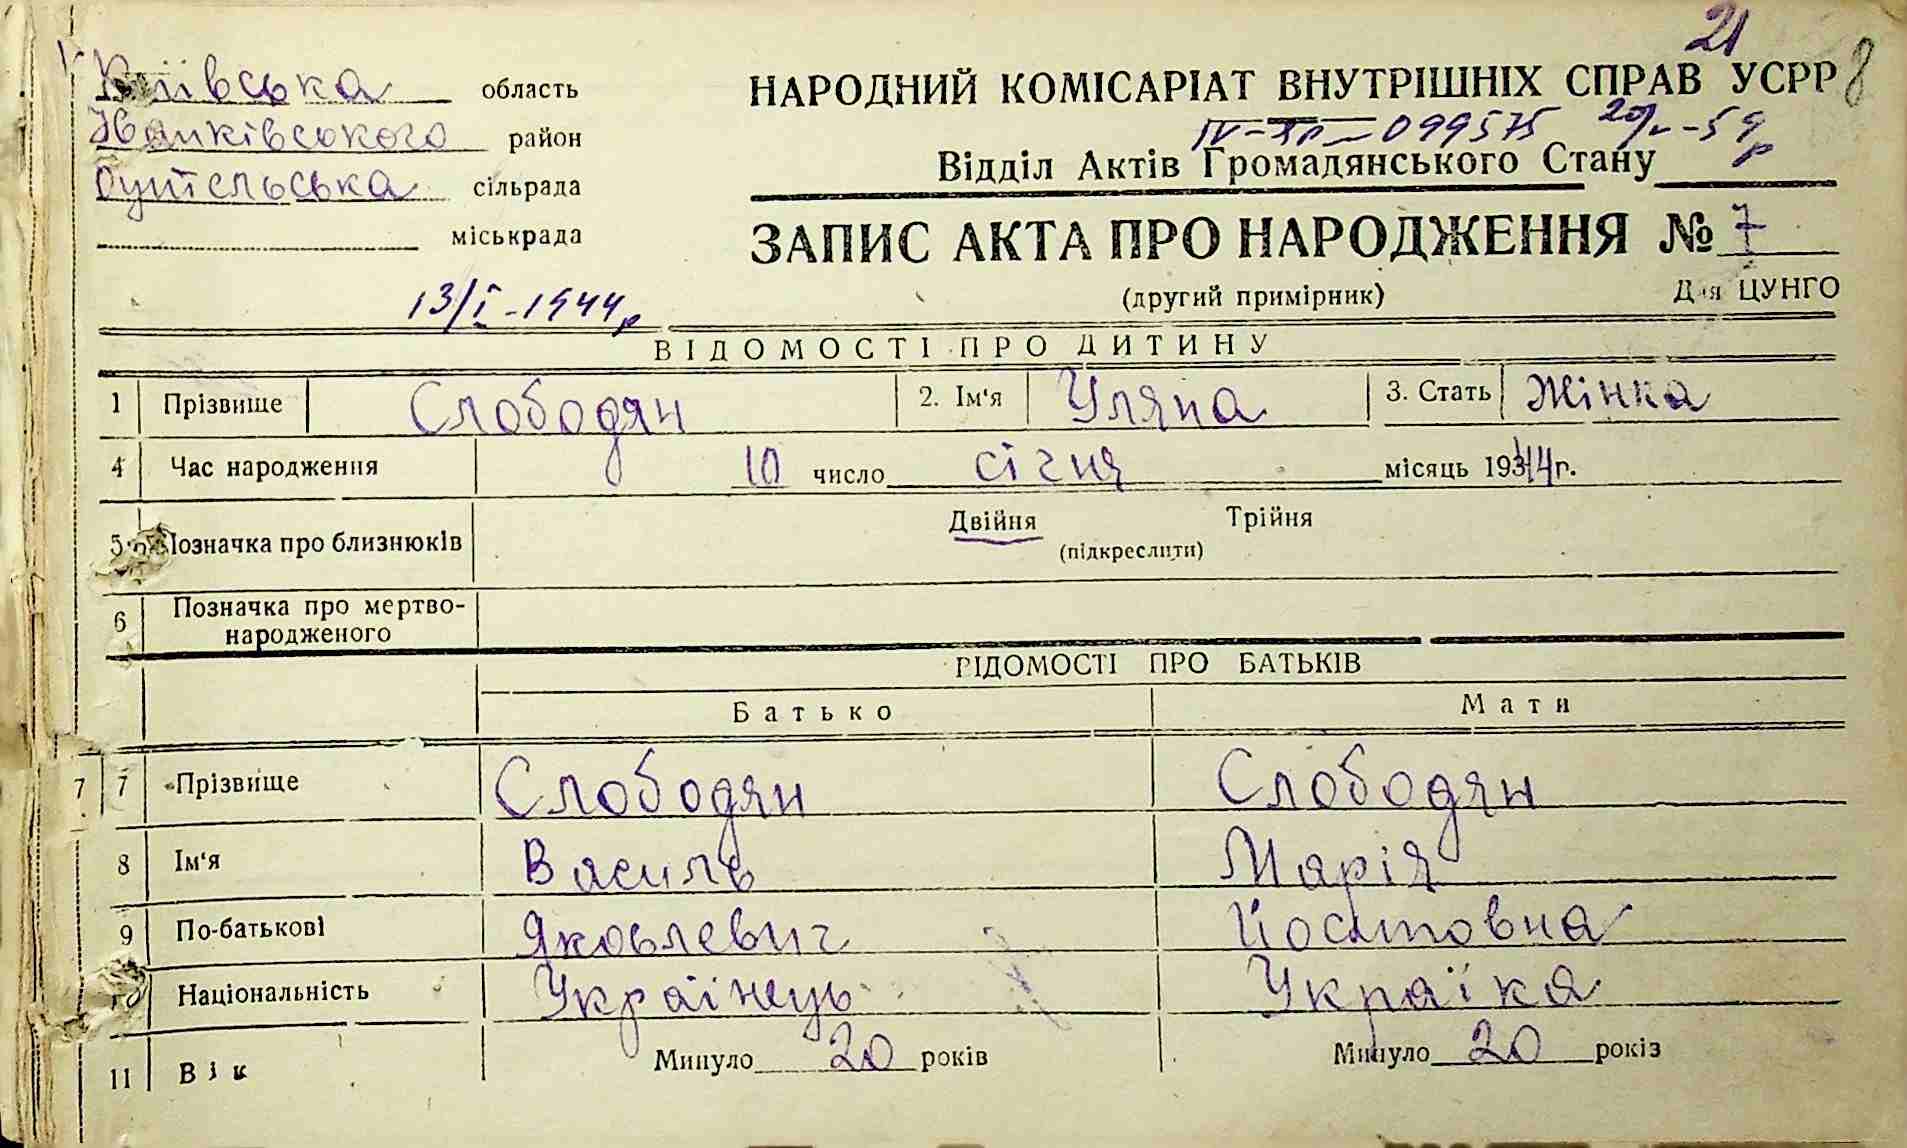 21
8
Київська область
Іванківського район
сільрада
міськрада
НАРОДНИЙ КОМІСАРІАТ ВНУТРІШНІХ СПРАВ УСРР
IV-ЯП-099575
Відділ Актів Громадянського Стану
ЗАПИС АКТА ПРО НАРОДЖЕННЯ № 7
(другий примірник) Для ЦУНГО
13/I-1944р
ВІДОМОСТІ ПРО ДИТИНУ
1 Прізвище Слободян 2. Ім'я Уляна 3. Стать Жінка
4 Час народження 10 число січня місяць 1944г.
5 Позначка про близнюків Двійня Трійня
(підкреслити)
6 Позначка про мертво-
народженого
ВІДОМОСТІ ПРО БАТЬКІВ
Батько Мати
7 7 Прізвище Слободян Слободян
8 Ім'я Василь Марія
9 По-батькові Яковлевич Йосиповна
10 Національність Українець Україка
11 Вік Минуло 20 років Минуло 20 років